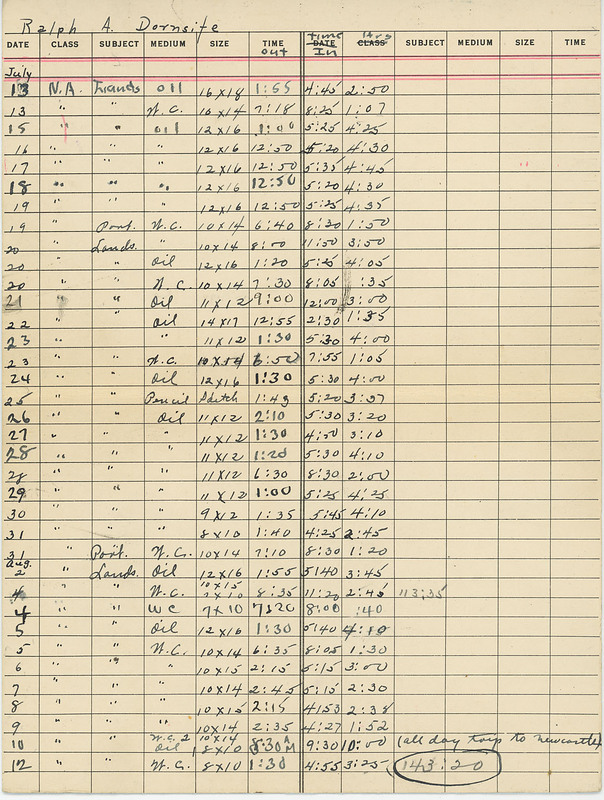 Ralph A. Dornsife
Time Hrs
DATE CLASS SUBJECT MEDIUM SIZE TIME DATE CLASS SUBJECT MEDIUM SIZE TIME
out In
July
13 N.A. Lands oil 16x18 1:55 4:45 2:50
13 " " W.C. 10x14 7:18 8:25 1:07
15 " " oil 12x16 1:00 5:25 4:25
16 " " " 12x16 12:50 5:20 4:30
17 " " " 12x16 12:50 5:35 4:45
18 " " " 12x16 12:50 5:20 4:30
19 " " " 12x16 12:50 5:25 4:35
19 " Port. W.C. 10x14 6:40 8:30 1:50
20 " Lands. " 10x14 8:00 11:50 3:50
20 " " oil 12x16 1:20 5:25 4:05
20 " " W.C. 10x14 7:30 8:05 :35
21 " " Oil 11x12 9:00 12:00 3:00
22 " " oil 14x17 12:55 2:30 1:35
23 " " " 11x12 1:30 5:30 4:00
23 " " W.C. 10x14 6:50 7:55 1:05
24 " " oil 12x16 1:30 5:30 4:00
25 " " Pencil Sketch 1:43 5:20 3:37
26 " " Oil 11x12 2:10 5:30 3:20
27 " " " 11x12 1:30 4:50 3:10
28 " " " 11x12 1:20 5:30 4:10
28 " " " 11x12 6:30 8:30 2:00
29 " " " 11x12 1:00 5:25 4:25
30 " " " 9x12 1:35 5:45 4:10
31 " " " 8x10 1:40 4:25 2:45
31 " Port. W.C. 10x14 7:10 8:30 1:20
Aug.
2 " Lands. Oil 12x16 1:55 5:40 3:45
10x15
4 " " W.C. 7x10 8:35 11:20 2:45 113:35
4 " " WC 7x10 7:20 8:00 :40
5 " " Oil 12x16 1:30 5:40 4:10
5 " " W.C. 10x14 6:35 8:05 1:30
6 " " " 10x15 2:15 5:15 3:00
7 " " " 10x14 2:45 5:15 2:30
8 " " " 10x15 2:15 4:53 2:38
9 " " " 10x14 2:35 4:27 1:52
W.C. 2 10x14 (all day trip to Newcastle)
10 " " Oil 1 8x10 8:30 AM 9:30 10:00
12 " " W.C. 8x10 1:30 4:55 3:25 143:20